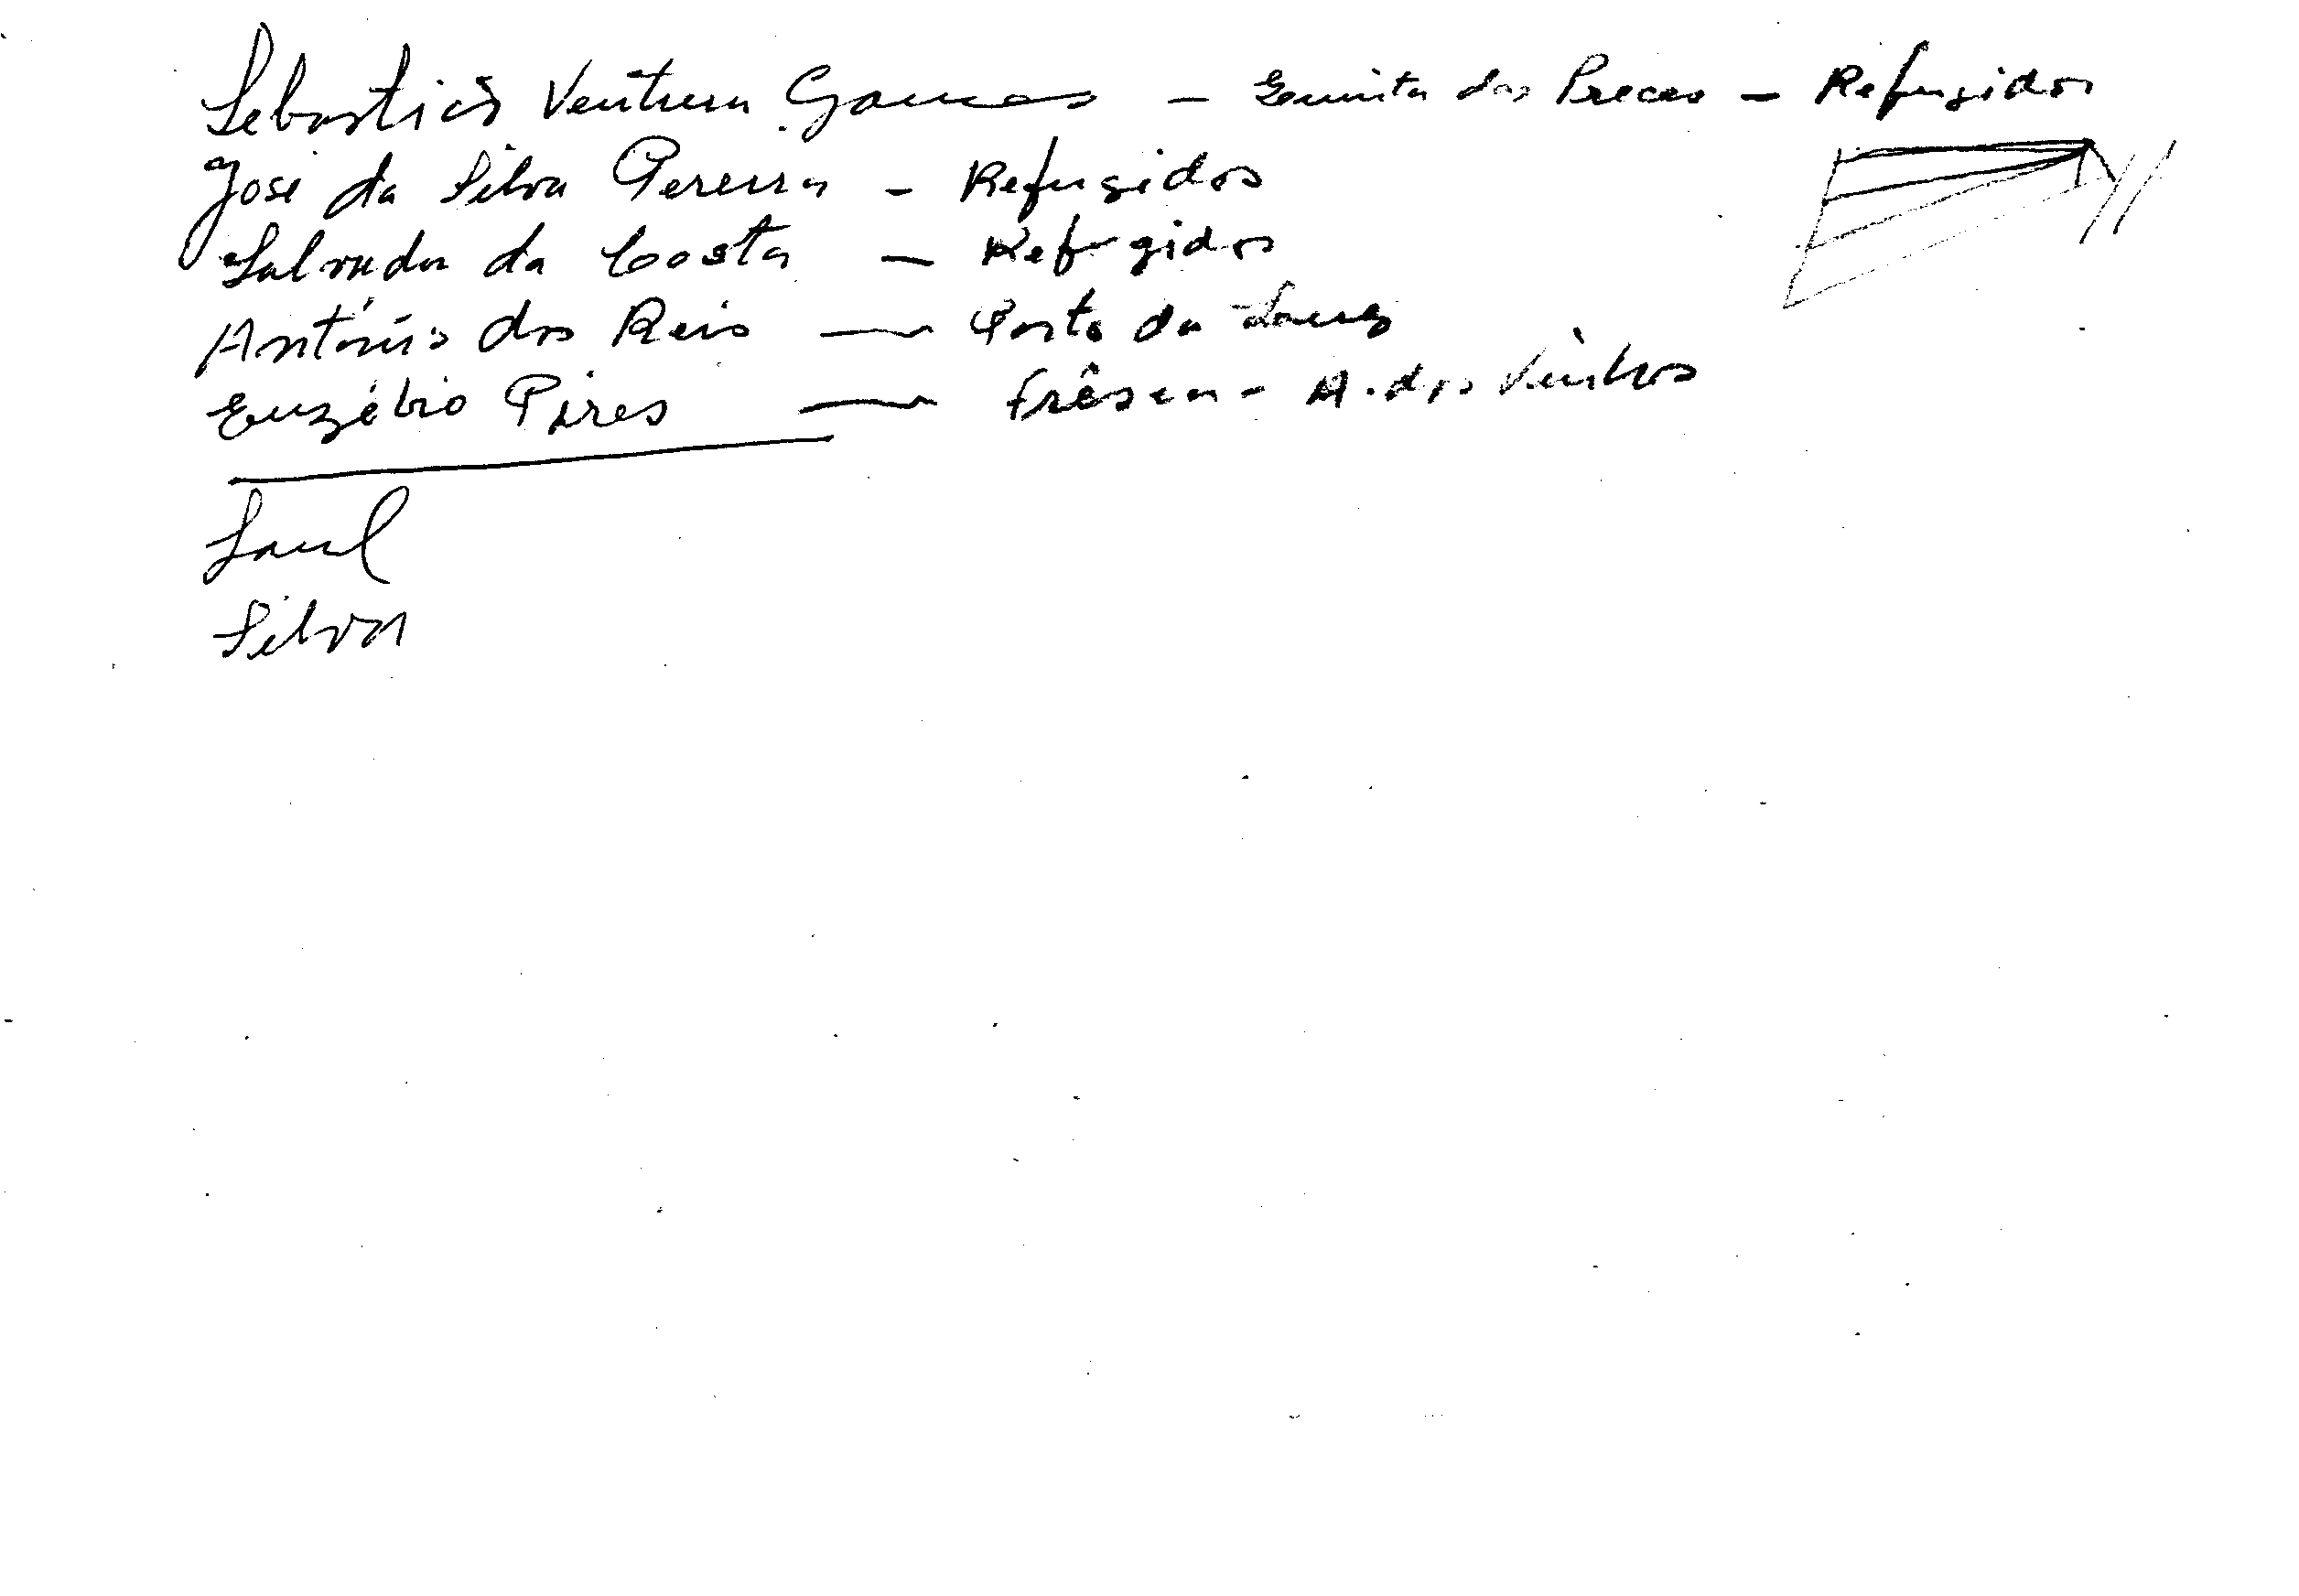 Sebastião Ventura Gomes - Ermita das Preces - Refugidos
José da Silva Pereira - Refugidos
Salvador da Costa - Refugidos
António dos Reis — Porto da
Euzébio Pires — Frêsca - A. dos Vinhos
Saul
Silva